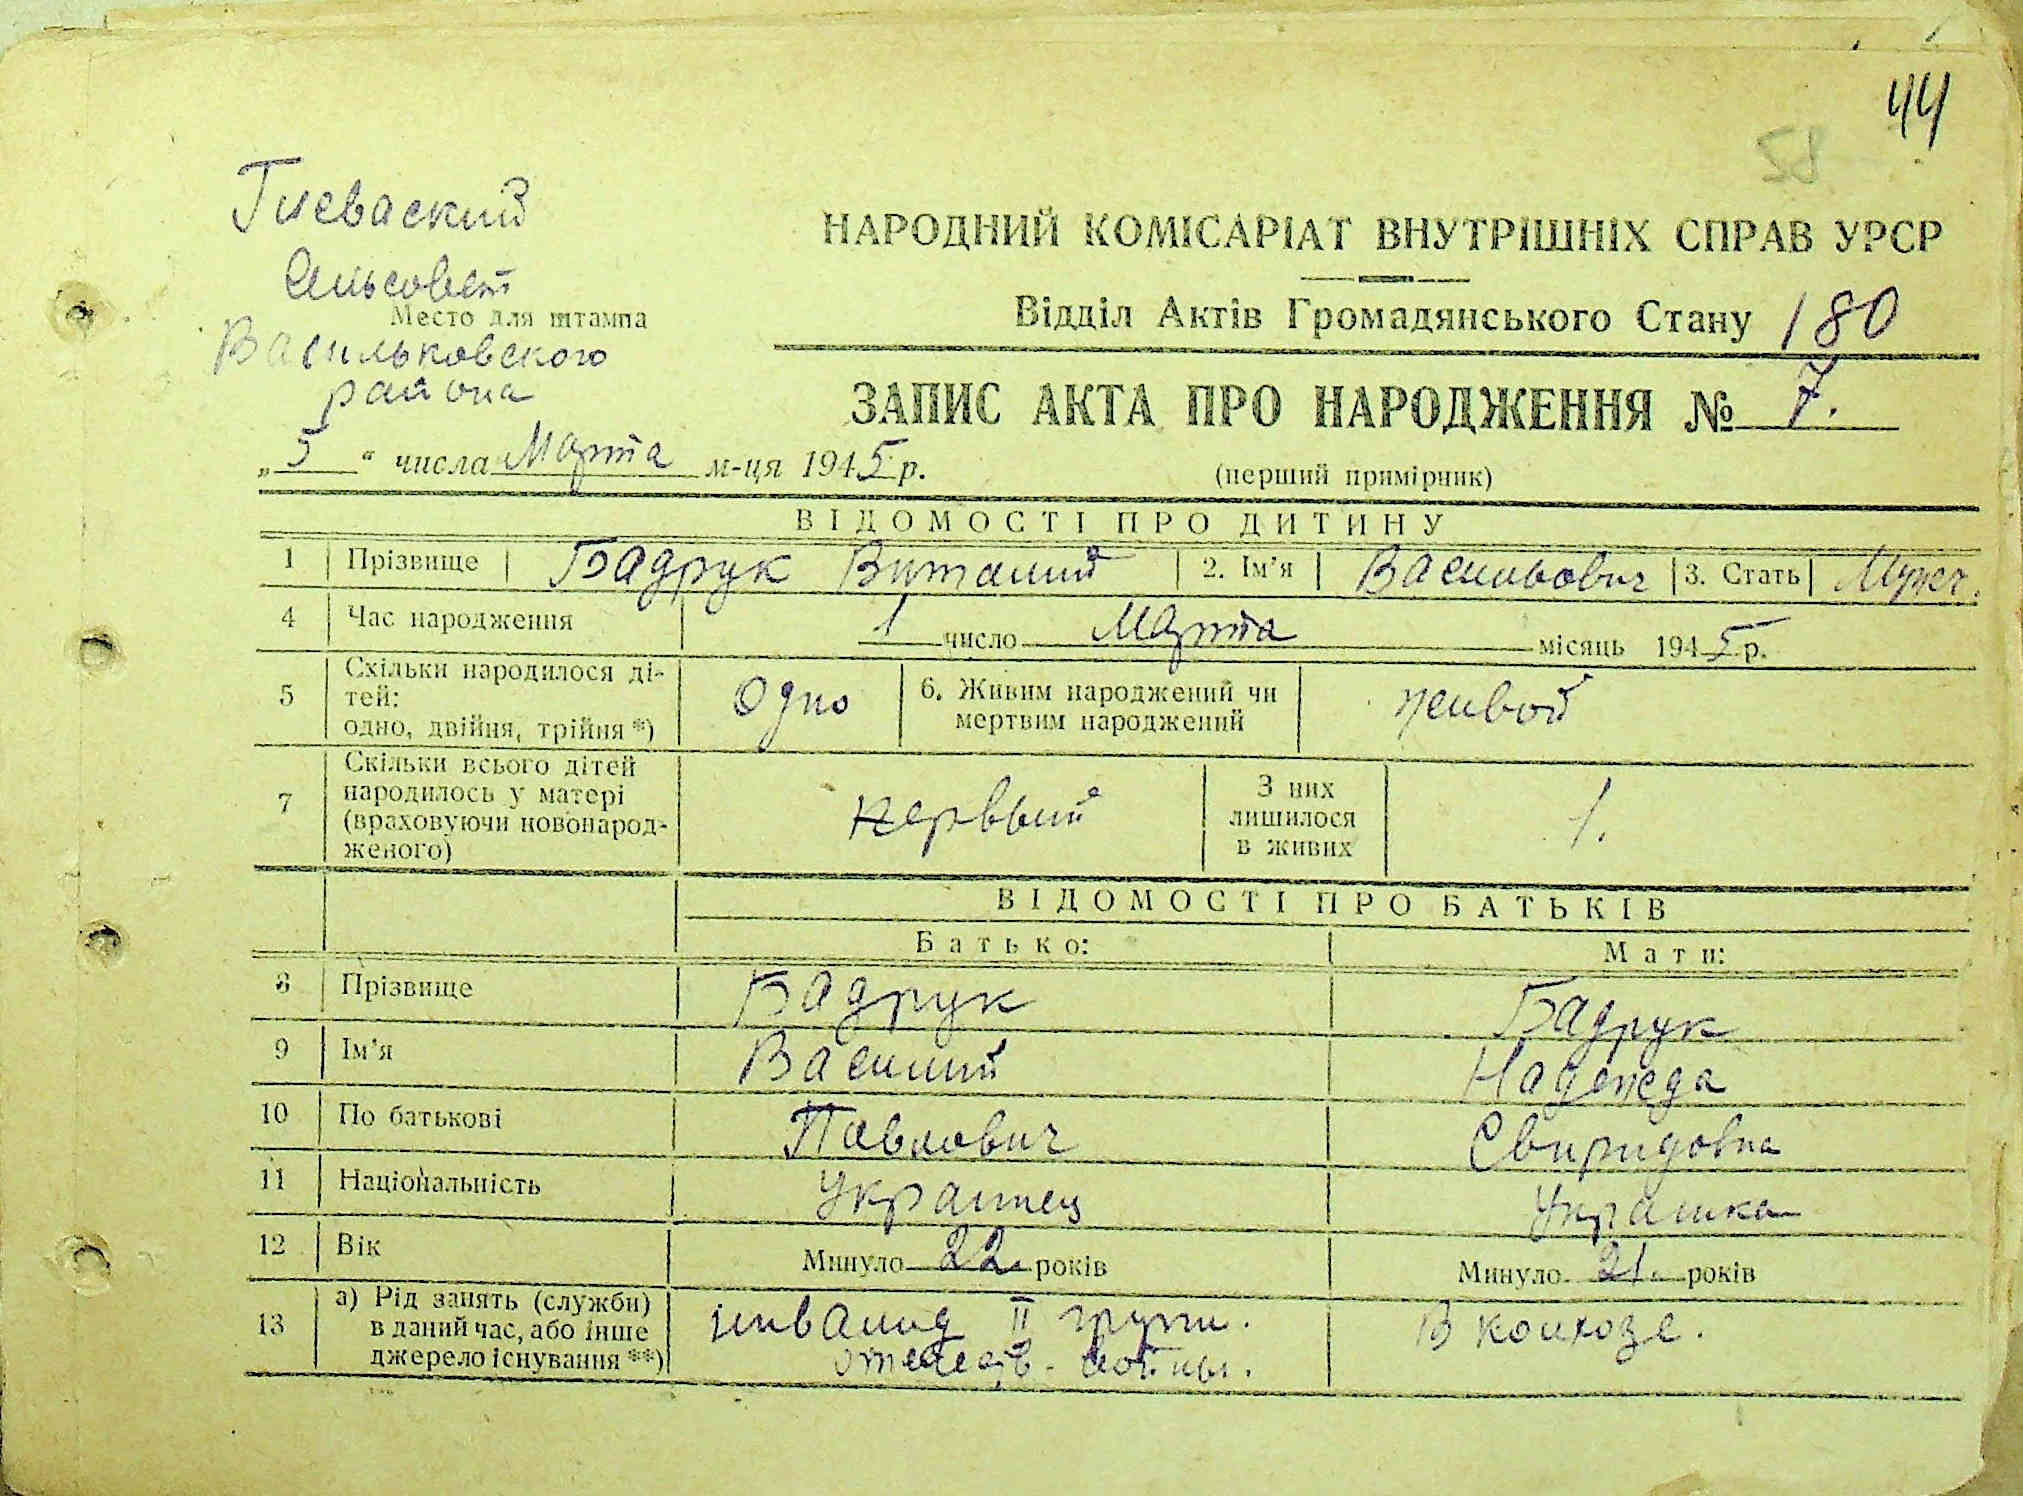 44
58
Глеваский
Сельсовет
Место для штампа
Васильковского
района
НАРОДНИЙ КОМІСАРІАТ ВНУТРІШНІХ СПРАВ УРСР
Відділ Актів Громадянського Стану 180
ЗАПИС АКТА ПРО НАРОДЖЕННЯ № 7.
„5“ числа Марта м-ця 1945 р.
(перший примірник)
ВІДОМОСТІ ПРО ДИТИНУ
1 Прізвище Бадрук Виталий 2. Ім’я Васильович 3. Стать Мужч.
4 Час народження 1 число Марта місяць 1945 р.
5 Схільки народилося ді-
тей:
одно, двійня, трійня *) Одно 6. Живим народжений чи
мертвим народжений живой
7 Скільки всього дітей
народилось у матері
(враховуючи новонарод-
женого) первый З них
лишилося
в живих 1.
ВІДОМОСТІ ПРО БАТЬКІВ
Батько: Мати:
8 Прізвище Бадрук Бадрук
9 Ім’я Василий Надежда
10 По батькові Павлович Свиридовна
11 Національність Украинец Украинка
12 Вік Минуло 22. років Минуло 21. років
13 а) Рід занять (служби)
в даний час, або інше
джерело існування **) инвалид II групи.
отечеств. войны. В колхозе.